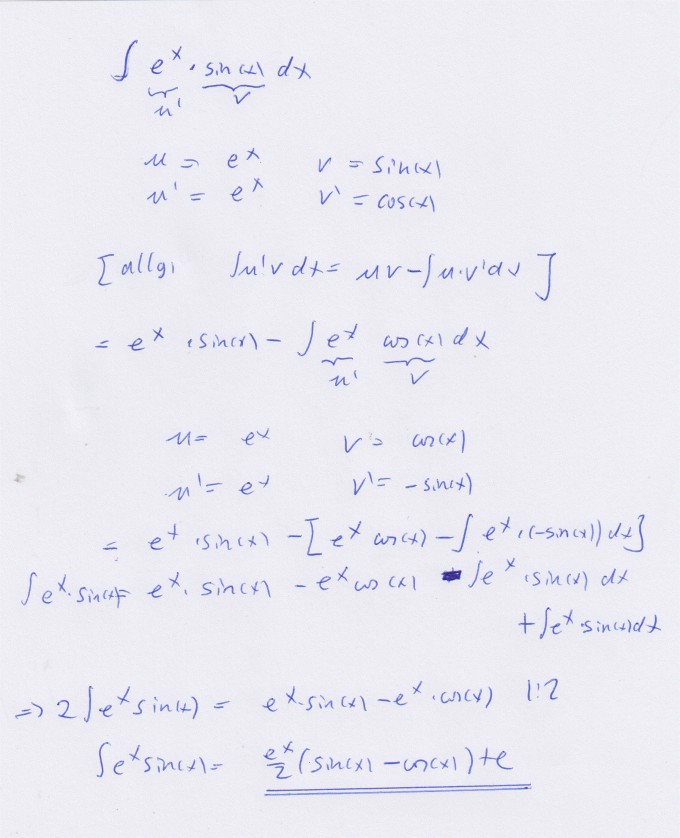 ∫ e^x · sin(x) dx
u' v
u = e^x v = sin(x)
u' = e^x v' = cos(x)
[allg: ∫u'v dx = uv - ∫u·v'dx]
= e^x · sin(x) - ∫ e^x cos(x) dx
u' v
u = e^x v = cos(x)
u' = e^x v' = -sin(x)
= e^x · sin(x) - [e^x cos(x) - ∫ e^x · (-sin(x)) dx]
∫ e^x · sin(x) = e^x · sin(x) - e^x cos(x) - ∫e^x · sin(x) dx
+ ∫e^x · sin(x) dx
=> 2 ∫e^x sin(x) = e^x · sin(x) - e^x · cos(x) |:2
∫e^x sin(x) = e^x/2 (sin(x) - cos(x)) + c